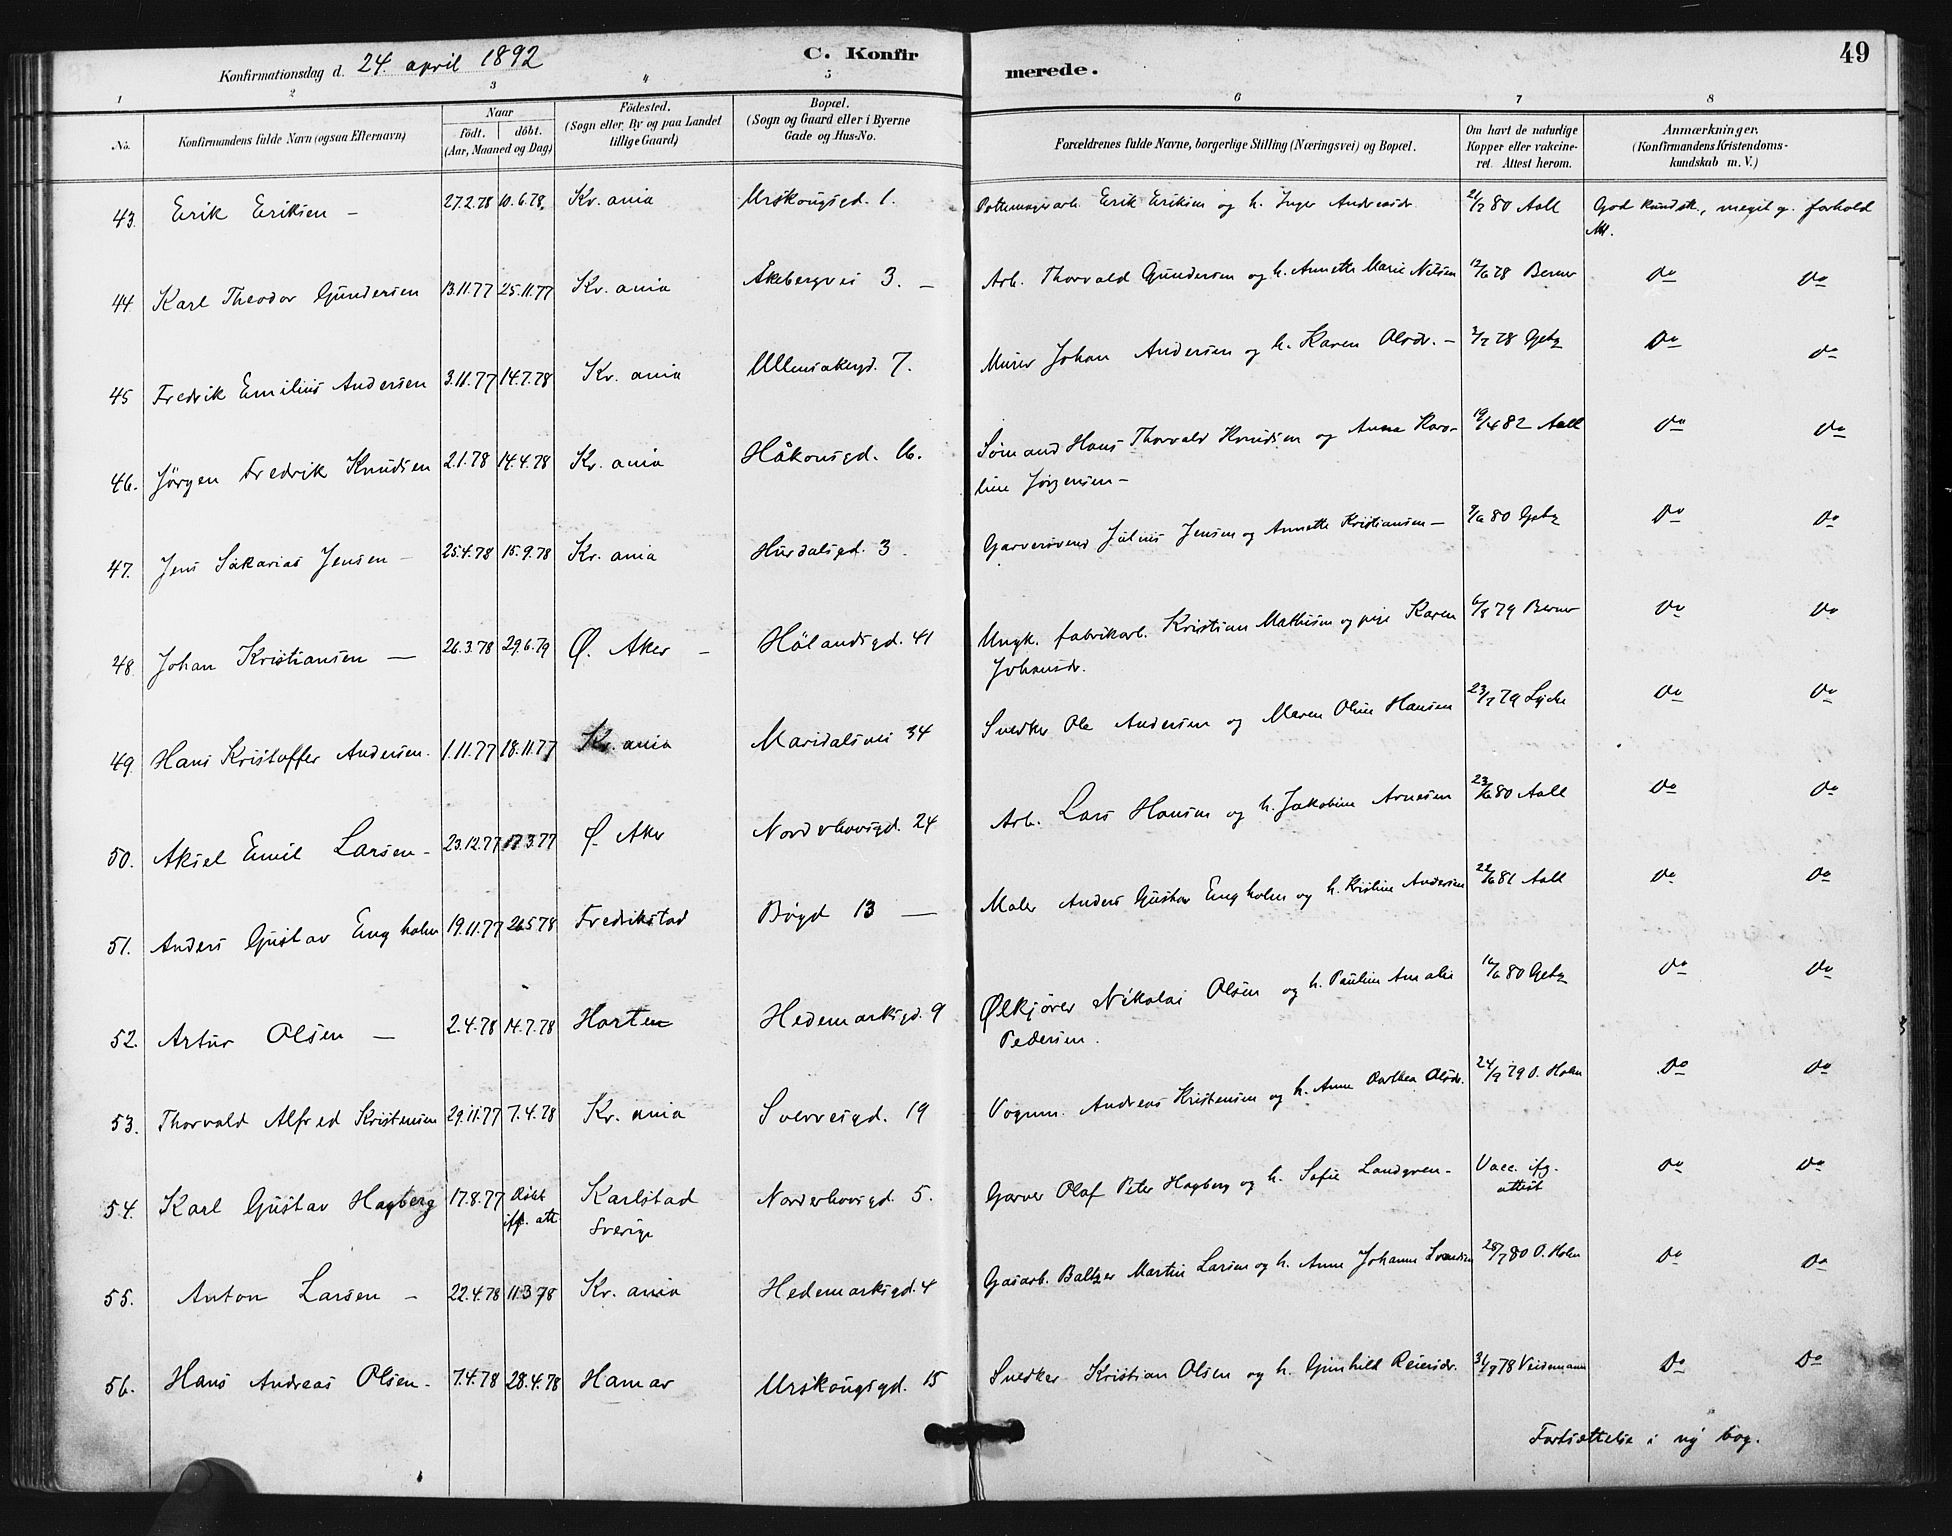 Konfirmationsdag d. 24. april 1892
C. Konfir
merede.
49
1 2 3 4 5 6 7 8
No.
Konfirmandens fulde Navn (ogsaa Efternavn)
Naar
födt. döbt.
(Aar, Maaned og Dag)
Födested.
(Sogn eller By og paa Landet
tillige Gaard)
Bopæl.
(Sogn og Gaard eller i Byerne
Gade og Hus-No.
Forældrenes fulde Navne, borgerlige Stilling (Næringsvei) og Bopæl.
Om havt de naturlige
Kopper eller vakcine-
ret. Attest herom.
Anmærkninger.
(Konfirmandens Kristendoms-
kundskab m. V.)
43. Erik Eriksen – 27.2.78 10.6.78. Kr. ania Urskougsgd. 1. Pottemagerarb. Erik Eriksen og h. Inger Andreasdr. 80 Aall God kundsk., meget g. forhold
44 Karl Theodor Gundersen 13.11.77 25.11.77 Kr. ania Åkebergvei 3. – Arb. Thorvald Gundersen og h. Annette Marie Nilsen 12/6 78 Berner do do
45 Fredrik Emilius Andersen 3.11.77 14.7.78 Kr. ania Ullensakergd. 7. Murer Johan Andersen og h. Karen Olsdr. – 78 Getz do do
46. Jörgen Fredrik Knudsen 2.1.78 14.4.78 Kr. ania Håkonsgd. 16. Sömand Hans Thorvald Knudsen og Anna Karo- 19/4 82 Aall do do
line Jörgensen –
47. Jens Sakarias Jensen – 25.4.78 15.9.78 Kr. ania Hurdalsgd. 3. Garversvend Julius Jensen og Annette Kristiansen – 9/6 80 Getz do do
48 Johan Kristiansen – 26.3.78 29.6.79 Ø. Aker – Hölandsgd. 41 Ungk. fabrikarb. Kristian Mathisen og pige Karen 6/8 79 Berner do do
Johansdr.
49. Hans Kristoffer Andersen. 1.11.77 18.11.77 Kr. ania Maridalsvei 34 Snedker Ole Andersen og Maren Oline Hansen 23/7 79 Lycke do do
50. Aksel Emil Larsen – 23.12.77 17.3.77 Ø. Aker Norderhovsgd. 24 Arb. Lars Hansen og h. Jakobine Arnesen 23/6 80 Aall do do
51. Anders Gustav Engholm 19.11.77 26.5.78 Fredrikstad Bögd 13 – Maler Anders Gustav Engholm og h. Kristine Andersen 22/6 81 Aall do do
52. Artur Olsen – 2.4.78 14.7.78 Horten Hedemarksgd. 9 Ølkjörer Nikolai Olsen og h. Pauline Amalie 16/6 80 Getz do do
Pedersen.
53. Thorvald Alfred Kristensen 29.11.77 7.4.78 Kr. ania Sverresgd. 19 Vognm. Andreas Kristensen og h. Anne Dorthea Olsdr. 24/9 79 O. Holm do do
54. Karl Gustav Hagberg 17.8.77 Döbt Karlstad Norderhovsgd 5. Garver Olaf Peter Hagberg og h. Sofie Landgren – Vacc. ifg. do do
ifg. att. Sverige attest
55. Anton Larsen – 22.4.78 11.3.78 Kr. ania Hedemarksgd. 4 Gasarb. Baltzer Martin Larsen og h. Anne Johanne Svendsen 28/7 80 O. Holm do do
56. Hans Andreas Olsen – 7.4.78 28.4.78 Hamar Urskougsgd. 15 Snedker Kristian Olsen og h. Gunhild Reiersdr. 78 Veidemann do do
Fortsættelse i ny bog.